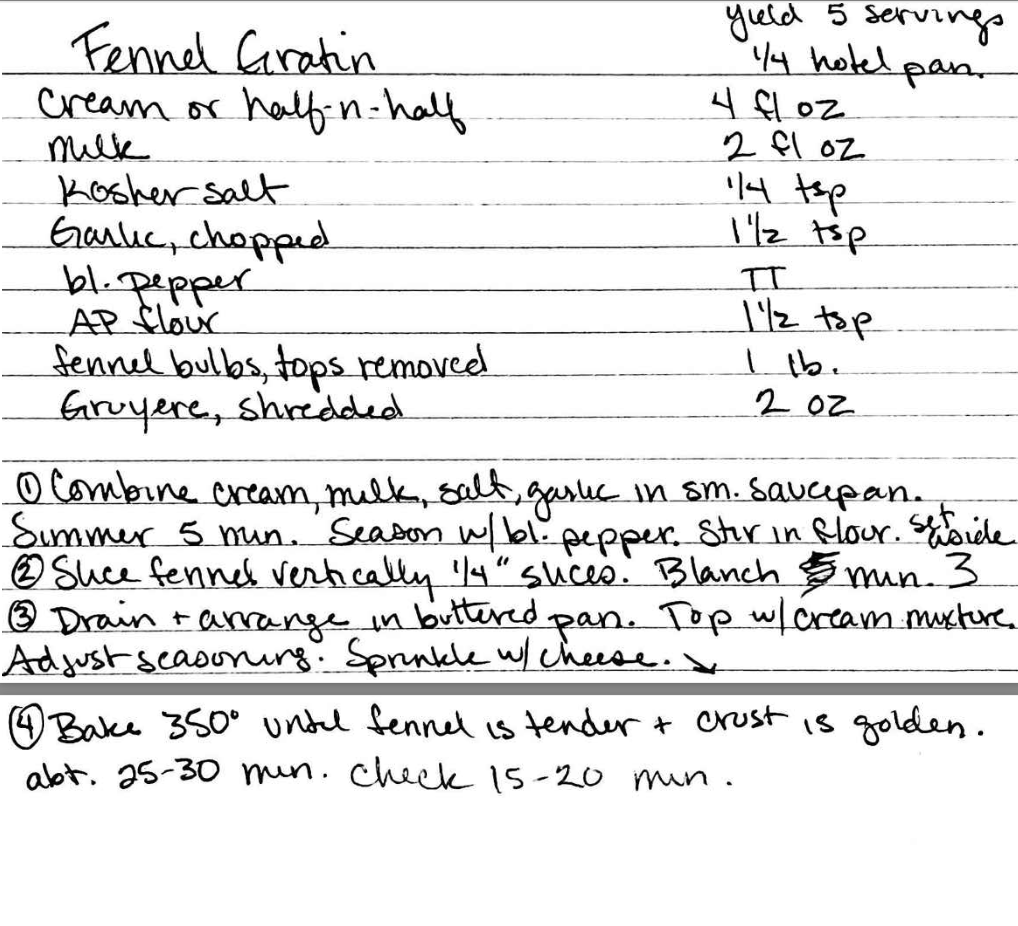 Fennel Gratin yield 5 servings
1/4 hotel pan.
Cream or half-n-half 4 fl oz
milk 2 fl oz
Kosher salt 1/4 tsp
Garlic, chopped 1 1/2 tsp
bl. pepper TT
AP flour 1 1/2 tsp
fennel bulbs, tops removed 1 lb.
Gruyere, shredded 2 oz
① Combine cream, milk, salt, garlic in sm. saucepan.
Simmer 5 min. Season w/ bl. pepper. Stir in flour. set aside
② Slice fennel vertically 1/4" slices. Blanch min. 3
③ Drain + arrange in buttered pan. Top w/ cream mixture.
Adjust seasoning. Sprinkle w/ cheese. ↘
④ Bake 350° until fennel is tender + crust is golden.
abt. 25-30 min. check 15-20 min.